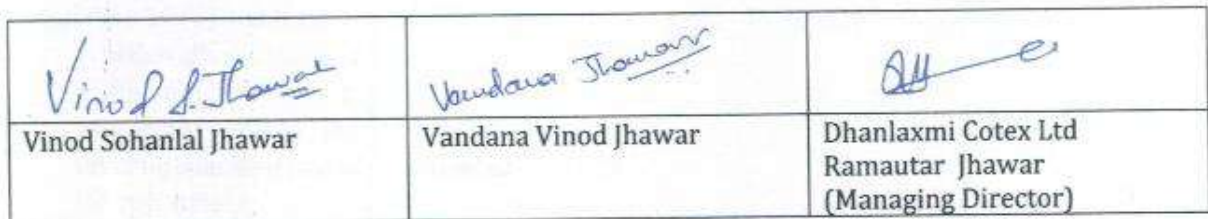 Vinod S. Jhawar
Vandana Jhawar
Vinod Sohanlal Jhawar
Vandana Vinod Jhawar
Dhanlaxmi Cotex Ltd
Ramautar Jhawar
(Managing Director)